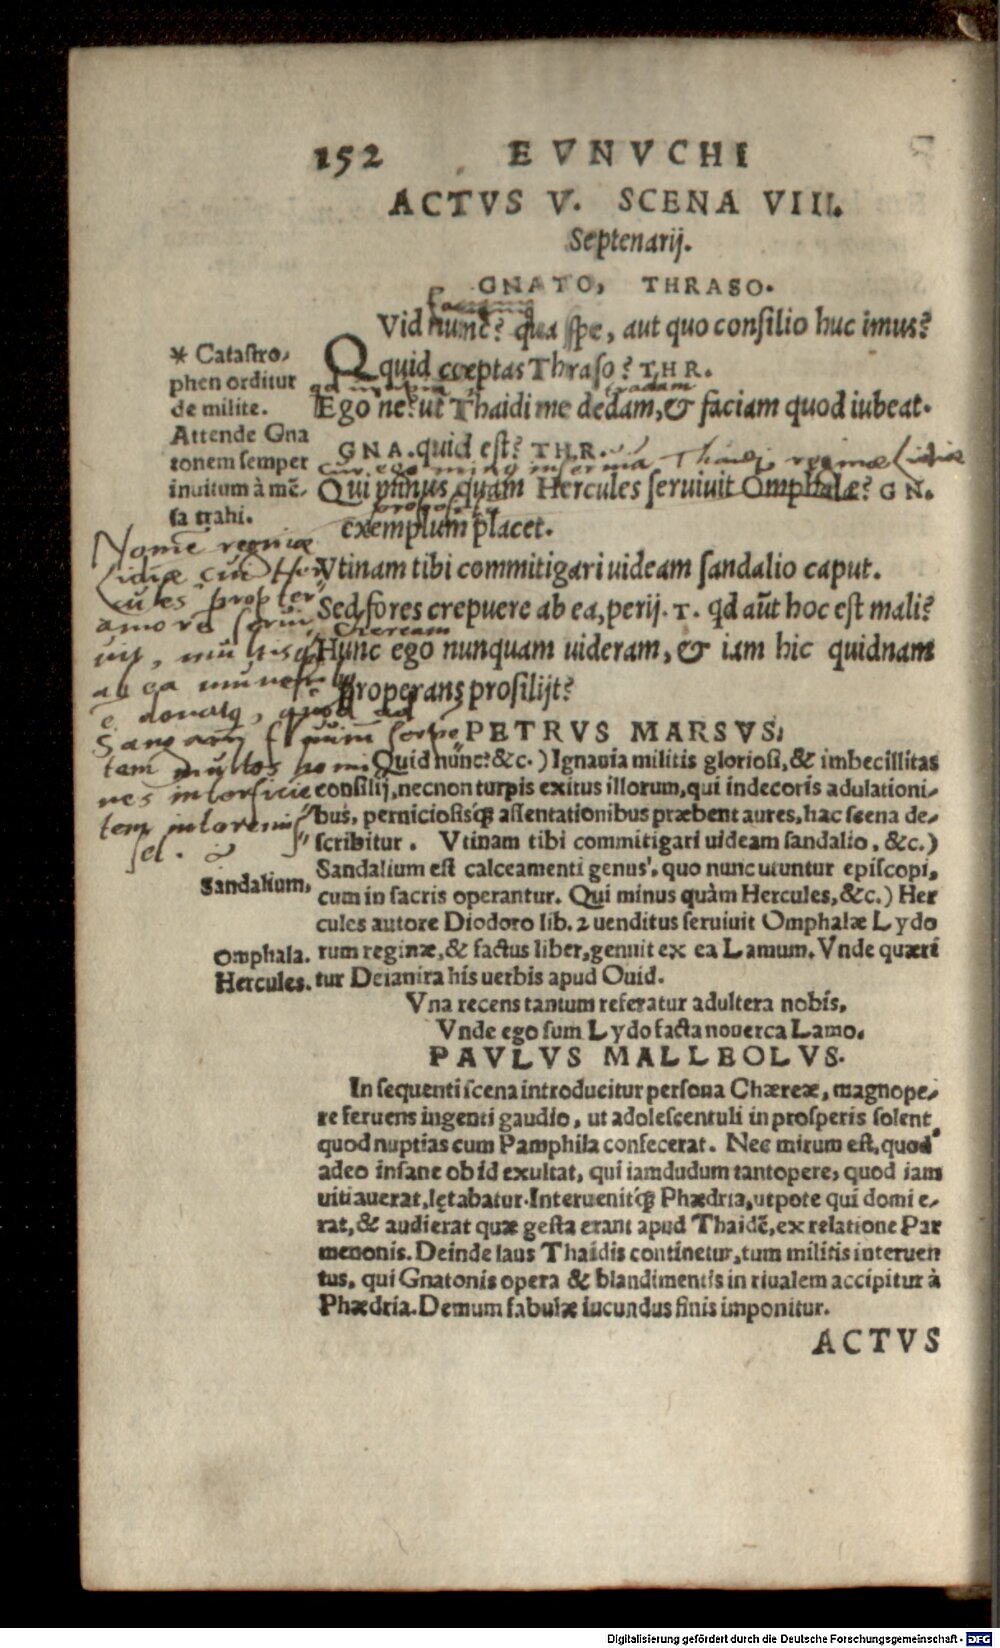 152 EVNVCHI
ACTVS V. SCENA VIII.
Septenarij.
GNATO, THRASO.
QVid nunc? qua spe, aut quo consilio huc imus?
quid cœptas Thraso? THR.
Ego ne? ut Thaidi me dedam, & faciam quod iubeat.
GNA. quid est? THR.
Qui minus quam Hercules seruiuit Omphalæ? GN.
exemplum placet.
Vtinam tibi commitigari uideam sandalio caput.
Sed fores crepuere ab ea, perij. T. qd aūt hoc est mali?
Hunc ego nunquam uideram, & iam hic quidnam
properans prosilijt?
* Catastro-
phen orditur
de milite.
Attende Gna
tonem semper
inuitum à mē-
sa trahi.
tradam
cur ego minq inseruiā Thaidj reginæ Lidiæ
proposita
Chæream
Nomē reginæ
Lidiæ cui Her
cules propter
amorē serui
uit, multisq
ab ea munerib
ē donatq, quod ad
Sangarim fluuiū serpē
tem multos homi
nes interficiē
tem interemis
set.
PETRVS MARSVS.
Quid nunc? &c.) Ignauia militis gloriosi, & imbecillitas
consilij, necnon turpis exitus illorum, qui indecoris adulationi-
bus, perniciosisq; assentationibus præbent aures, hac scena de-
scribitur. Vtinam tibi commitigari uideam sandalio, &c.)
Sandalium est calceamenti genus, quo nunc utuntur episcopi,
cum in sacris operantur. Qui minus quàm Hercules, &c.) Her
cules autore Diodoro lib. 2 uenditus seruiuit Omphalæ Lydo
rum reginæ, & factus liber, genuit ex ea Lamum. Vnde quæri
tur Deianira his uerbis apud Ouid.
Vna recens tantum referatur adultera nobis,
Vnde ego sum Lydo facta nouerca Lamo.
Sandalium.
Omphala.
Hercules.
PAVLVS MALLEOLVS.
In sequenti scena introducitur persona Chæreæ, magnope-
re feruens ingenti gaudio, ut adolescentuli in prosperis solent
quod nuptias cum Pamphila confecerat. Nec mirum est, quod
adeo insane ob id exultat, qui iamdudum tantopere, quod iam
uitiauerat, lętabatur. Interuenitq; Phædria, utpote qui domi e-
rat, & audierat quæ gesta erant apud Thaidē, ex relatione Par
menonis. Deinde laus Thaidis continetur, tum militis interuen
tus, qui Gnatonis opera & blandimentis in riualem accipitur à
Phædria. Demum fabulæ iucundus finis imponitur.
ACTVS
Digitalisierung gefördert durch die Deutsche Forschungsgemeinschaft - DFG